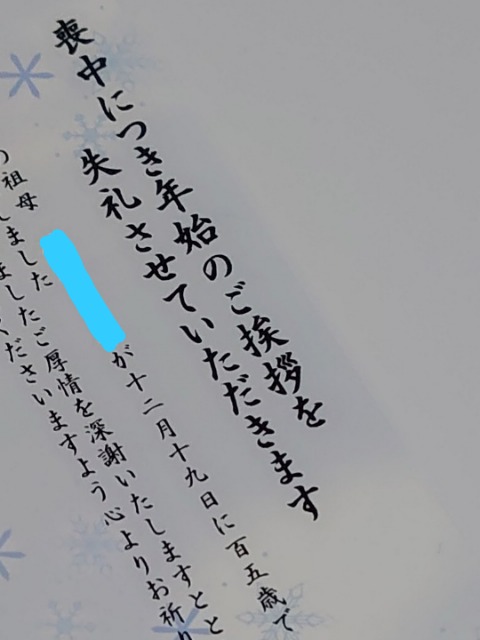 喪中につき年始のご挨拶を
失礼させていただきます
の祖母 が十二月十九日に百五歳で
しました
ましたご厚情を深謝いたしますとと
くださいますよう心よりお祈り